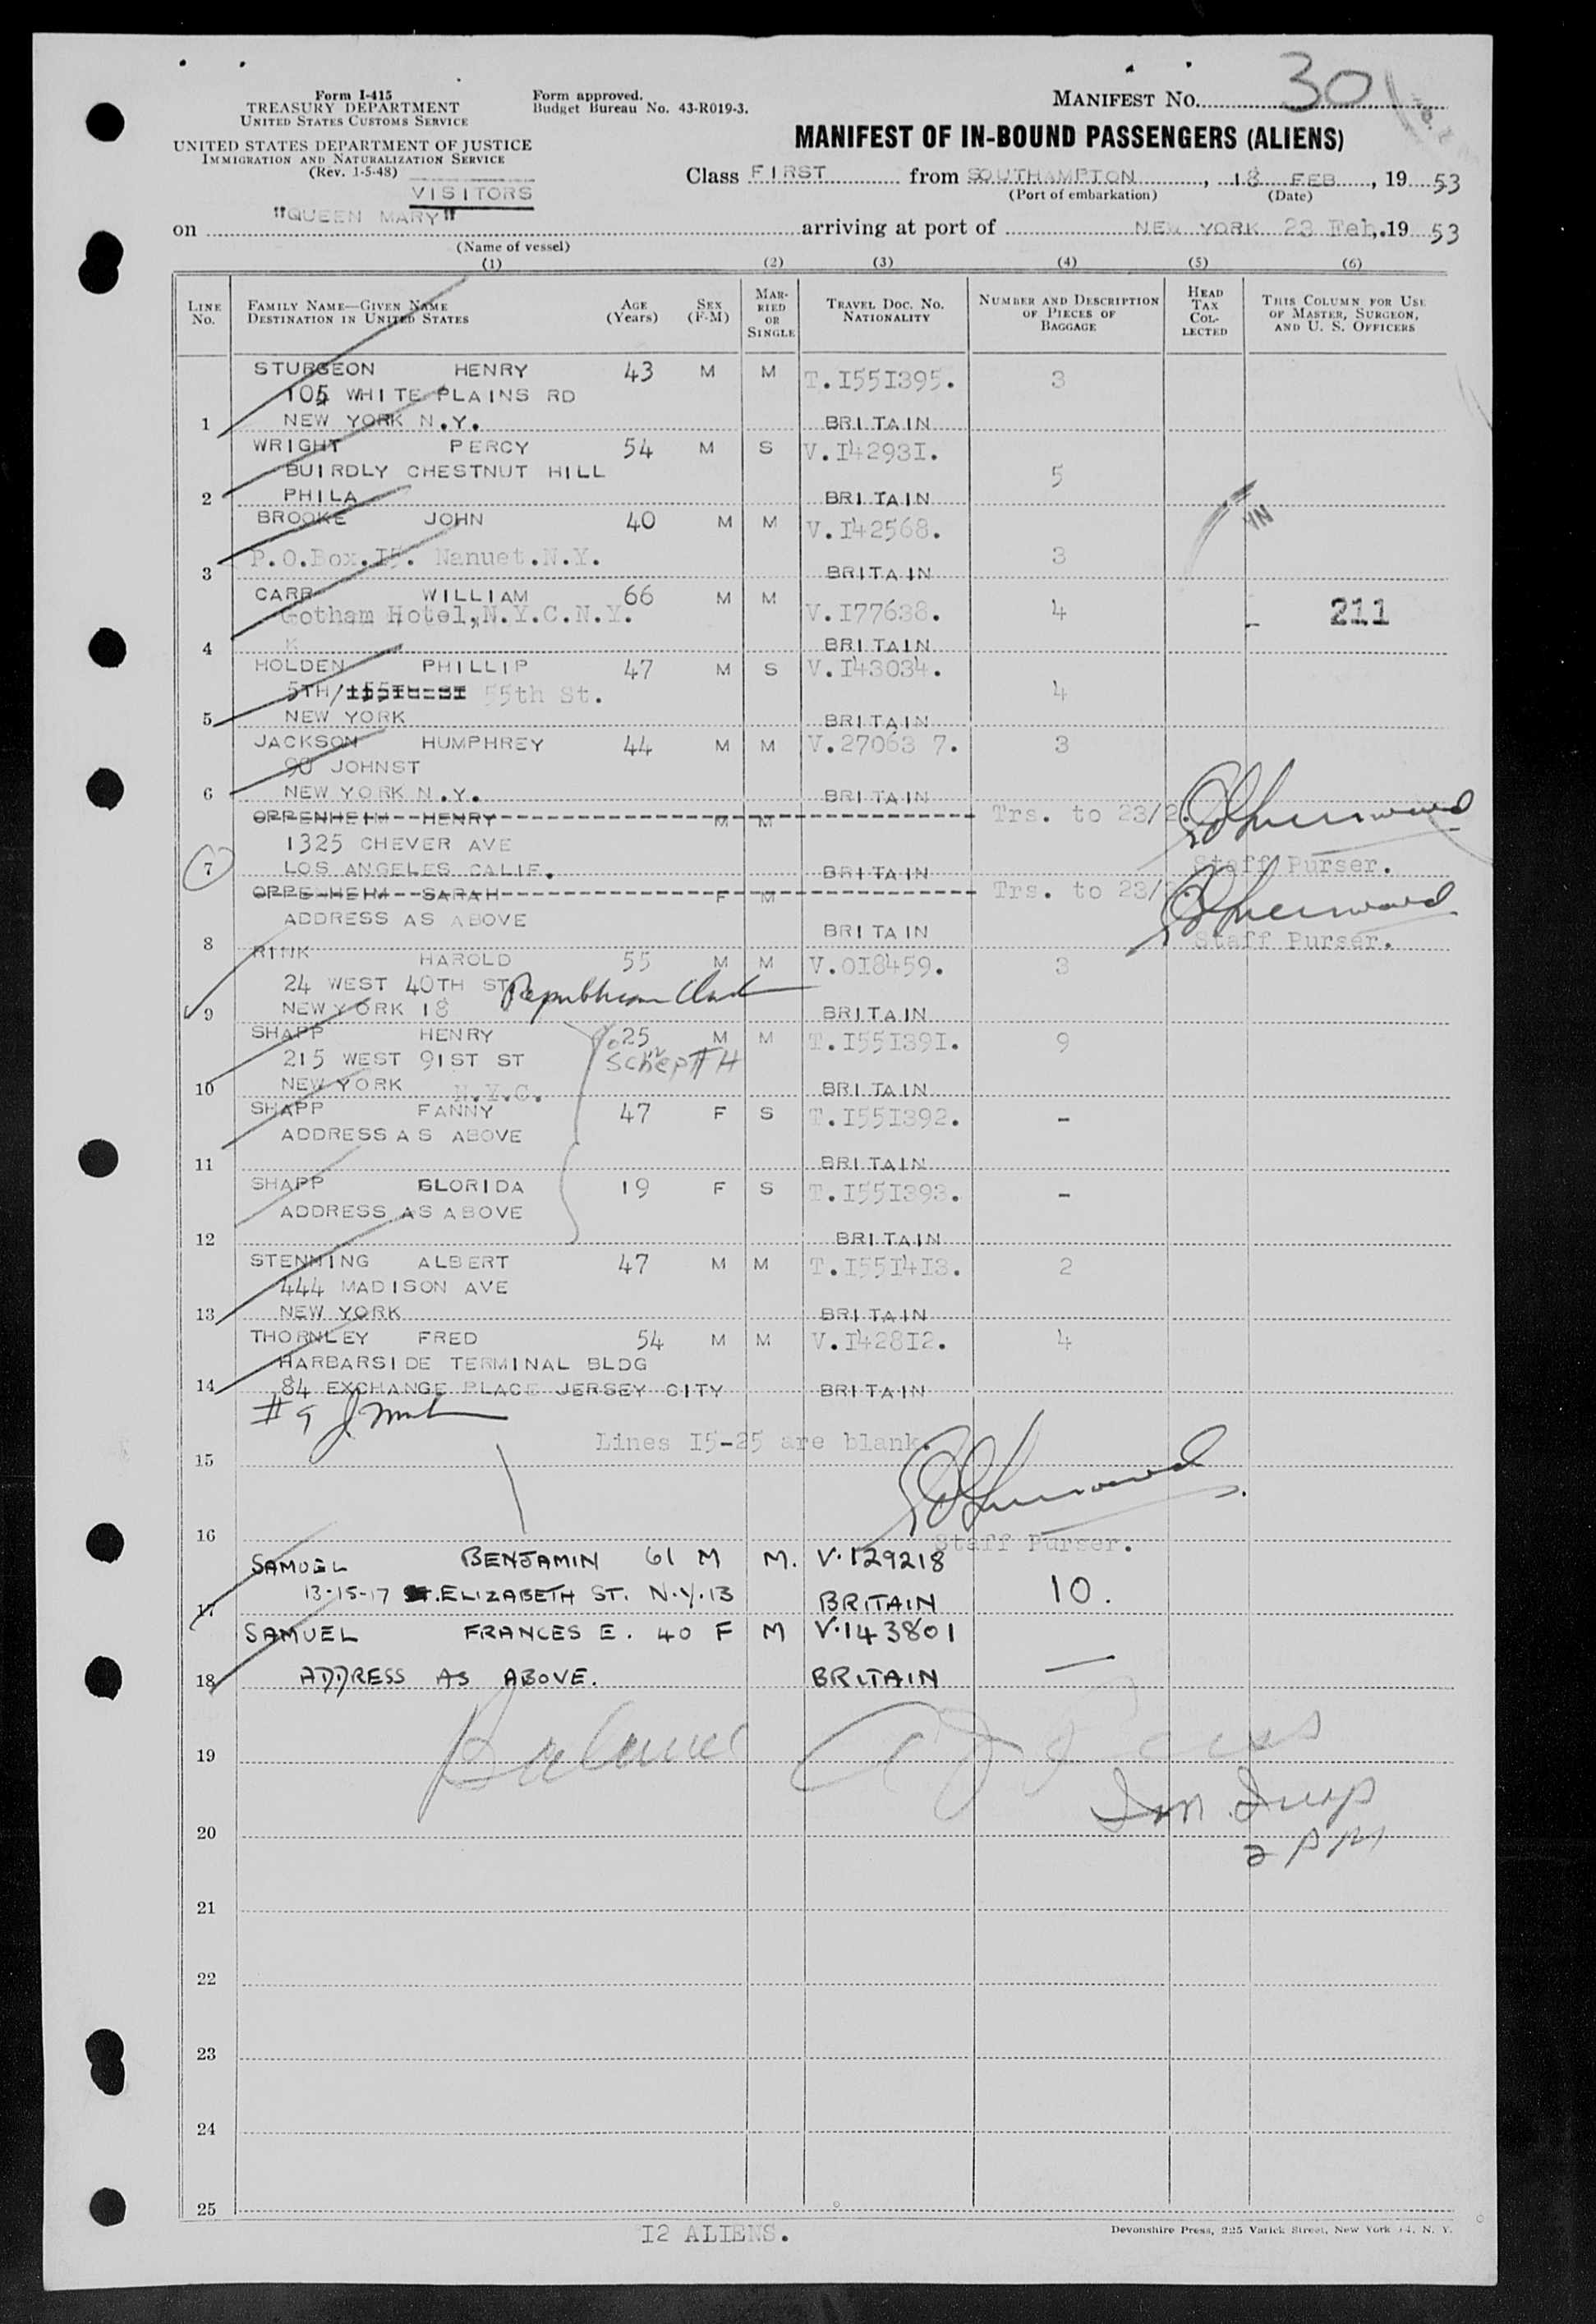 Form I-415
TREASURY DEPARTMENT
UNITED STATES CUSTOMS SERVICE
UNITED STATES DEPARTMENT OF JUSTICE
IMMIGRATION AND NATURALIZATION SERVICE
(Rev. 1-5-48)
VISITORS
Form approved.
Budget Bureau No. 43-R019-3.
MANIFEST No. 301
MANIFEST OF IN-BOUND PASSENGERS (ALIENS)
Class FIRST from SOUTHAMPTON, 18 FEB, 1953
(Port of embarkation) (Date)
on "QUEEN MARY" arriving at port of NEW YORK 23 Feb, 1953
(Name of vessel)
(1) (2) (3) (4) (5) (6)
LINE No. FAMILY NAME—GIVEN NAME DESTINATION IN UNITED STATES AGE (Years) SEX (F-M) MARRIED OR SINGLE TRAVEL DOC. NO. NATIONALITY NUMBER AND DESCRIPTION OF PIECES OF BAGGAGE HEAD TAX COLLECTED THIS COLUMN FOR USE OF MASTER, SURGEON, AND U. S. OFFICERS
STURGEON HENRY 43 M M T.I55I395. 3
105 WHITE PLAINS RD
1 NEW YORK N.Y. BRITAIN
WRIGHT PERCY 54 M S V.I4293I.
BUIRDLY CHESTNUT HILL 5
2 PHILA BRITAIN
BROOKE JOHN 40 M M V.I42568.
P.O.Box.I5. Nanuet.N.Y. 3
3 BRITAIN
CARR WILLIAM 66 M M
Gotham Hotel,N.Y.C.N.Y. V.I77638. 4 211
4 K BRITAIN
HOLDEN PHILLIP 47 M S V.I43034.
5TH/ 55th St. 4
5 NEW YORK BRITAIN
JACKSON HUMPHREY 44 M M V.27063 7. 3
90 JOHNST
6 NEW YORK N.Y. BRITAIN
OPPENHEIM HENRY M M Trs. to 23/2
1325 CHEVER AVE
7 LOS ANGELES CALIF. BRITAIN Staff Purser.
OPPE-HEIM SARAH F M Trs. to 23/
ADDRESS AS ABOVE
8 BRITAIN Staff Purser.
RINK HAROLD 55 M M V.018459. 3
24 WEST 40TH ST Republican Club
9 NEW YORK 18 BRITAIN
SHAPP HENRY 25 M M T.I55I39I. 9
215 WEST 91ST ST
10 NEW YORK N.Y.C. BRITAIN
SHAPP FANNY 47 F S T.I55I392. -
ADDRESS AS ABOVE
11 BRITAIN
SHAPP GLORIDA 19 F S T.I55I393. -
ADDRESS AS ABOVE
12 BRITAIN
STENNING ALBERT 47 M M T.I55I4I3. 2
444 MADISON AVE
13 NEW YORK BRITAIN
THORNLEY FRED 54 M M V.I428I2. 4
HARBARSIDE TERMINAL BLDG
14 84 EXCHANGE PLACE JERSEY CITY BRITAIN
# 9
Lines I5-25 are blank.
15
16 Staff Purser.
SAMUEL BENJAMIN 61 M M. V.129218
13-15-17 ELIZABETH ST. N.Y.13 10.
17 BRITAIN
SAMUEL FRANCES E. 40 F M V.143801
18 ADDRESS AS ABOVE. BRITAIN —
19
20
2 PM
21
22
23
24
25
I2 ALIENS.
Devonshire Press, 225 Varick Street, New York 14, N. Y.